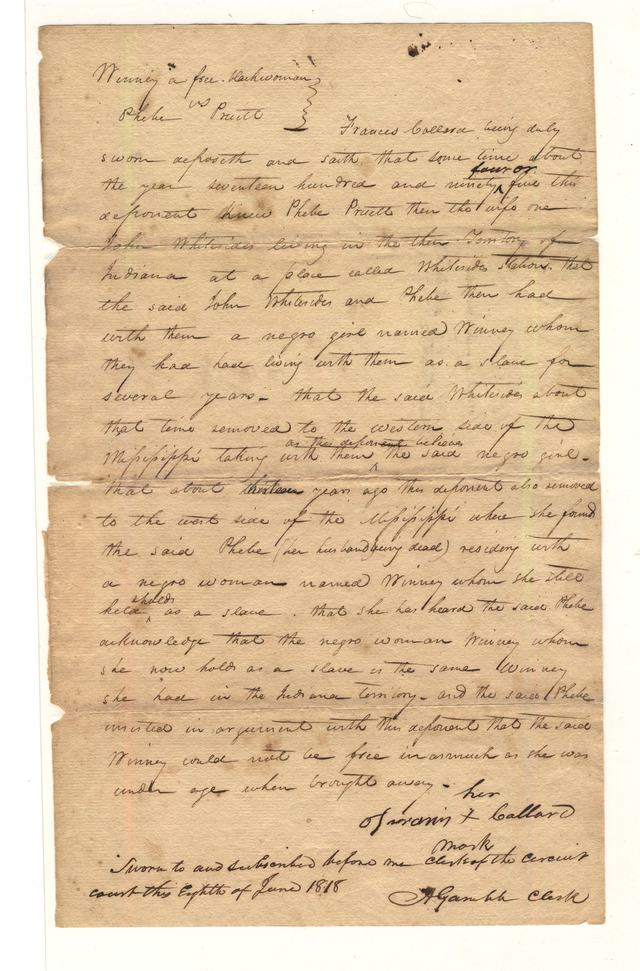 Winney a free blackwoman
vs
Phebe Pruitt
Frances Collard being duly
sworn deposeth and saith that some time about
four or
the year seventeen hundred and ninety ^ five this
deponent knew Phebe Pruett then the wife one
John Whitesides living in the then Territory of
Indiana at a place called Whitesides station. that
the said John Whitesides and Phebe then had
with them a negro girl named Winney whom
they had had living with them as a slave for
several years - that the said Whitesides about
that time removed to the western side of the
as this deponent believes
Missisippi taking with them ^ the said negro girl -
that about thirteen years ago this deponent also removed
to the west side of the Missisippi where she found
the said Phebe (her husband being dead) residing with
a negro woman named Winney whom she still
holds
held ^ as a slave, that she has heard the said Phebe
acknowledge that the negro woman Winney whom
she now holds as a slave is the same Winney
she had in the Indiana territory - and the said Phebe
insisted in argument with this deponent that the said
Winney could not be free in asmuch as she was
under age when brought away -
her
Francis X Collard
mark
Sworn to and subscribed before me Clerk of the Circuit
court this Eighth of June 1818
A Gamble Clerk